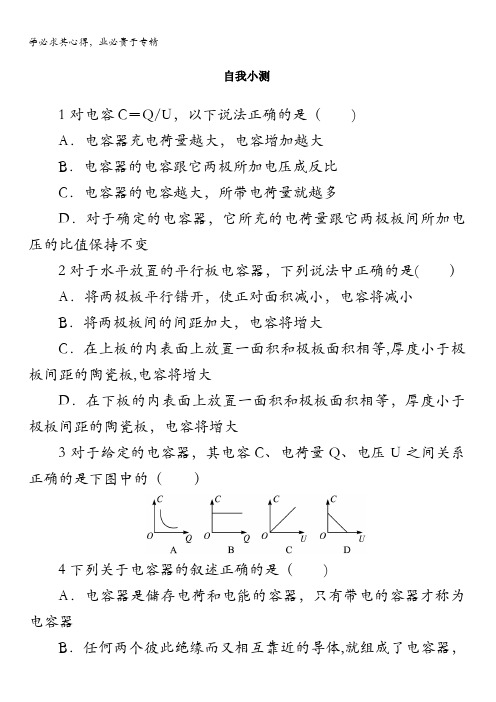 学必求其心得，业必贵于专精
自我小测
1对电容C＝Q/U，以下说法正确的是（　　)
A．电容器充电荷量越大，电容增加越大
B．电容器的电容跟它两极所加电压成反比
C．电容器的电容越大，所带电荷量就越多
D．对于确定的电容器，它所充的电荷量跟它两极板间所加电
压的比值保持不变
2对于水平放置的平行板电容器，下列说法中正确的是(　　）
A．将两极板平行错开，使正对面积减小，电容将减小
B．将两极板间的间距加大，电容将增大
C．在上板的内表面上放置一面积和极板面积相等,厚度小于极
板间距的陶瓷板,电容将增大
D．在下板的内表面上放置一面积和极板面积相等，厚度小于
极板间距的陶瓷板，电容将增大
3对于给定的电容器，其电容C、电荷量Q、电压U之间关系
正确的是下图中的（　　）
C C C C
O Q O Q O U O U
A B C D
4下列关于电容器的叙述正确的是（　　)
A．电容器是储存电荷和电能的容器，只有带电的容器才称为
电容器
B．任何两个彼此绝缘而又相互靠近的导体,就组成了电容器，